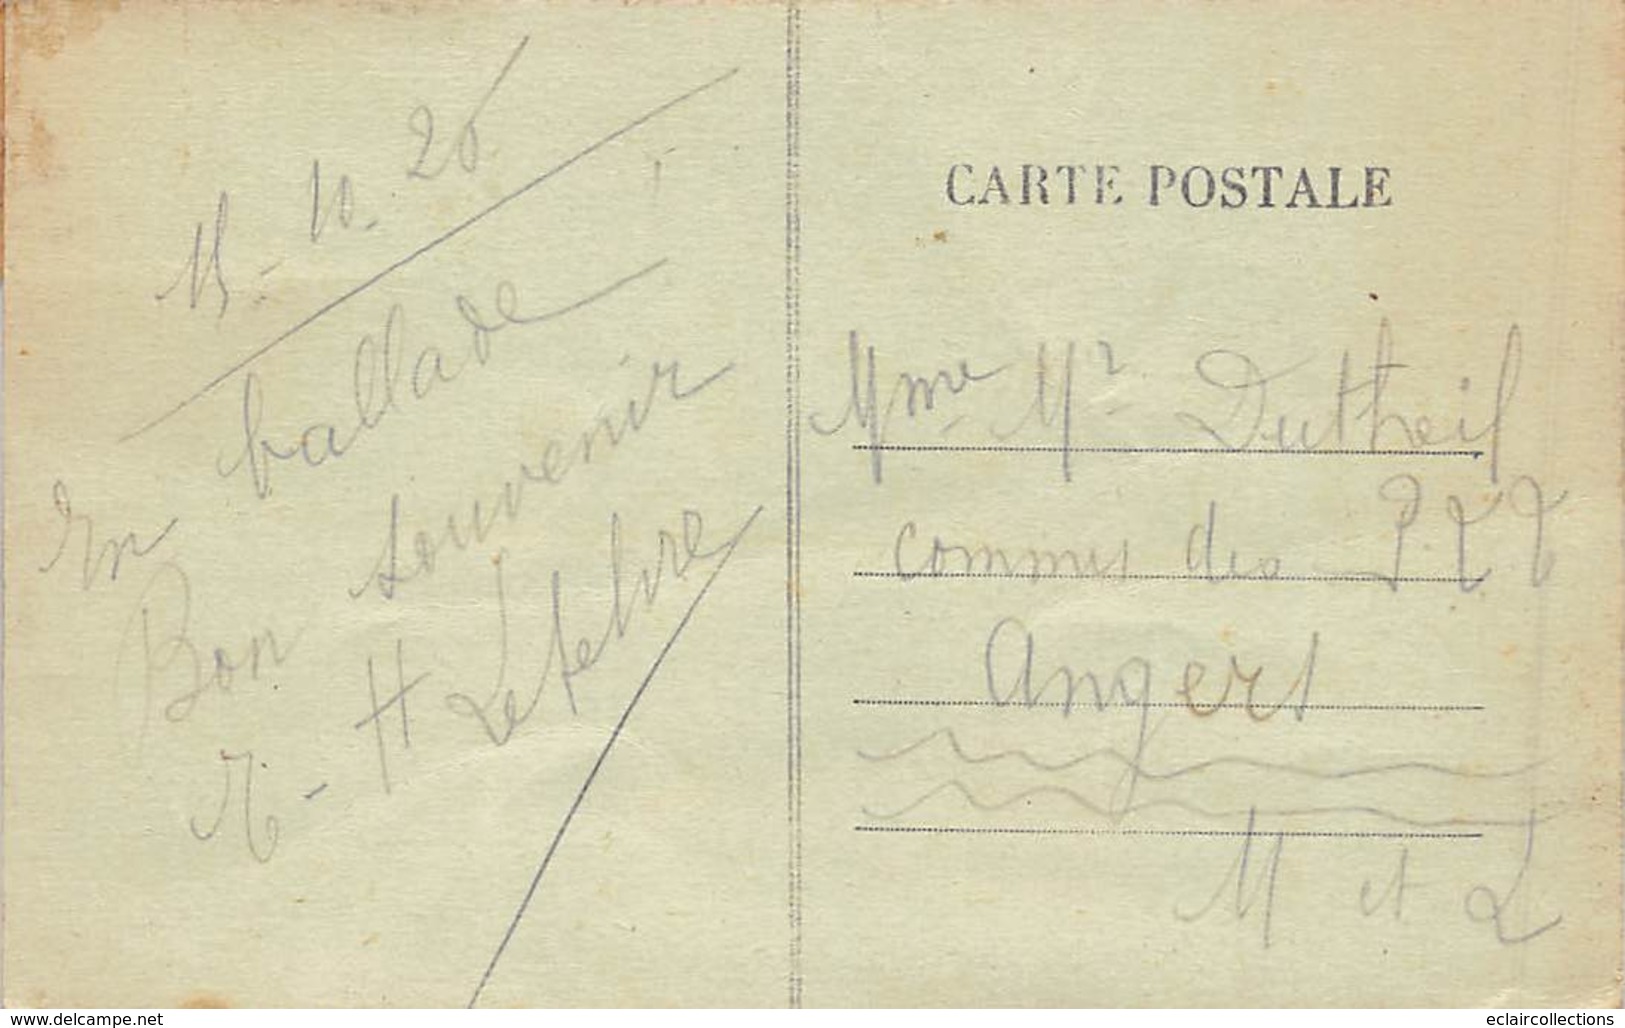 15-10-26
En ballade
Bon souvenir
H Lefebvre
CARTE POSTALE
Mme Mr Dutheil
commis des PTT
Angers
M et L
www.delcampe.net
eclaircollections